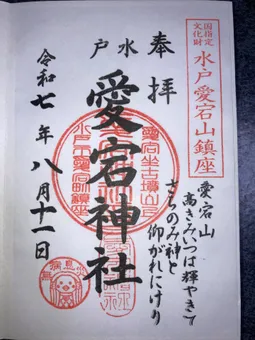 国指定
文化財
水戸愛宕山鎮座
愛宕山
高きみいつは輝やきて
さちのみ神と
仰がれにけり
奉拝
水戸
愛宕神社
水戸市愛宕町鎮座
令和七年八月十一日